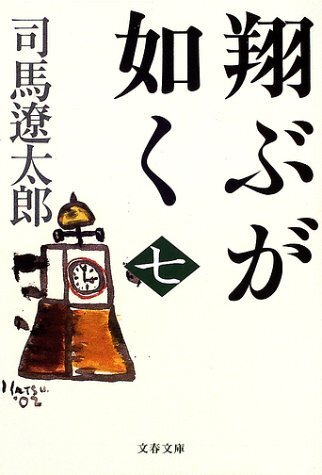 翔ぶが
如く
七
司馬遼太郎
HATSU.
'02
文春文庫